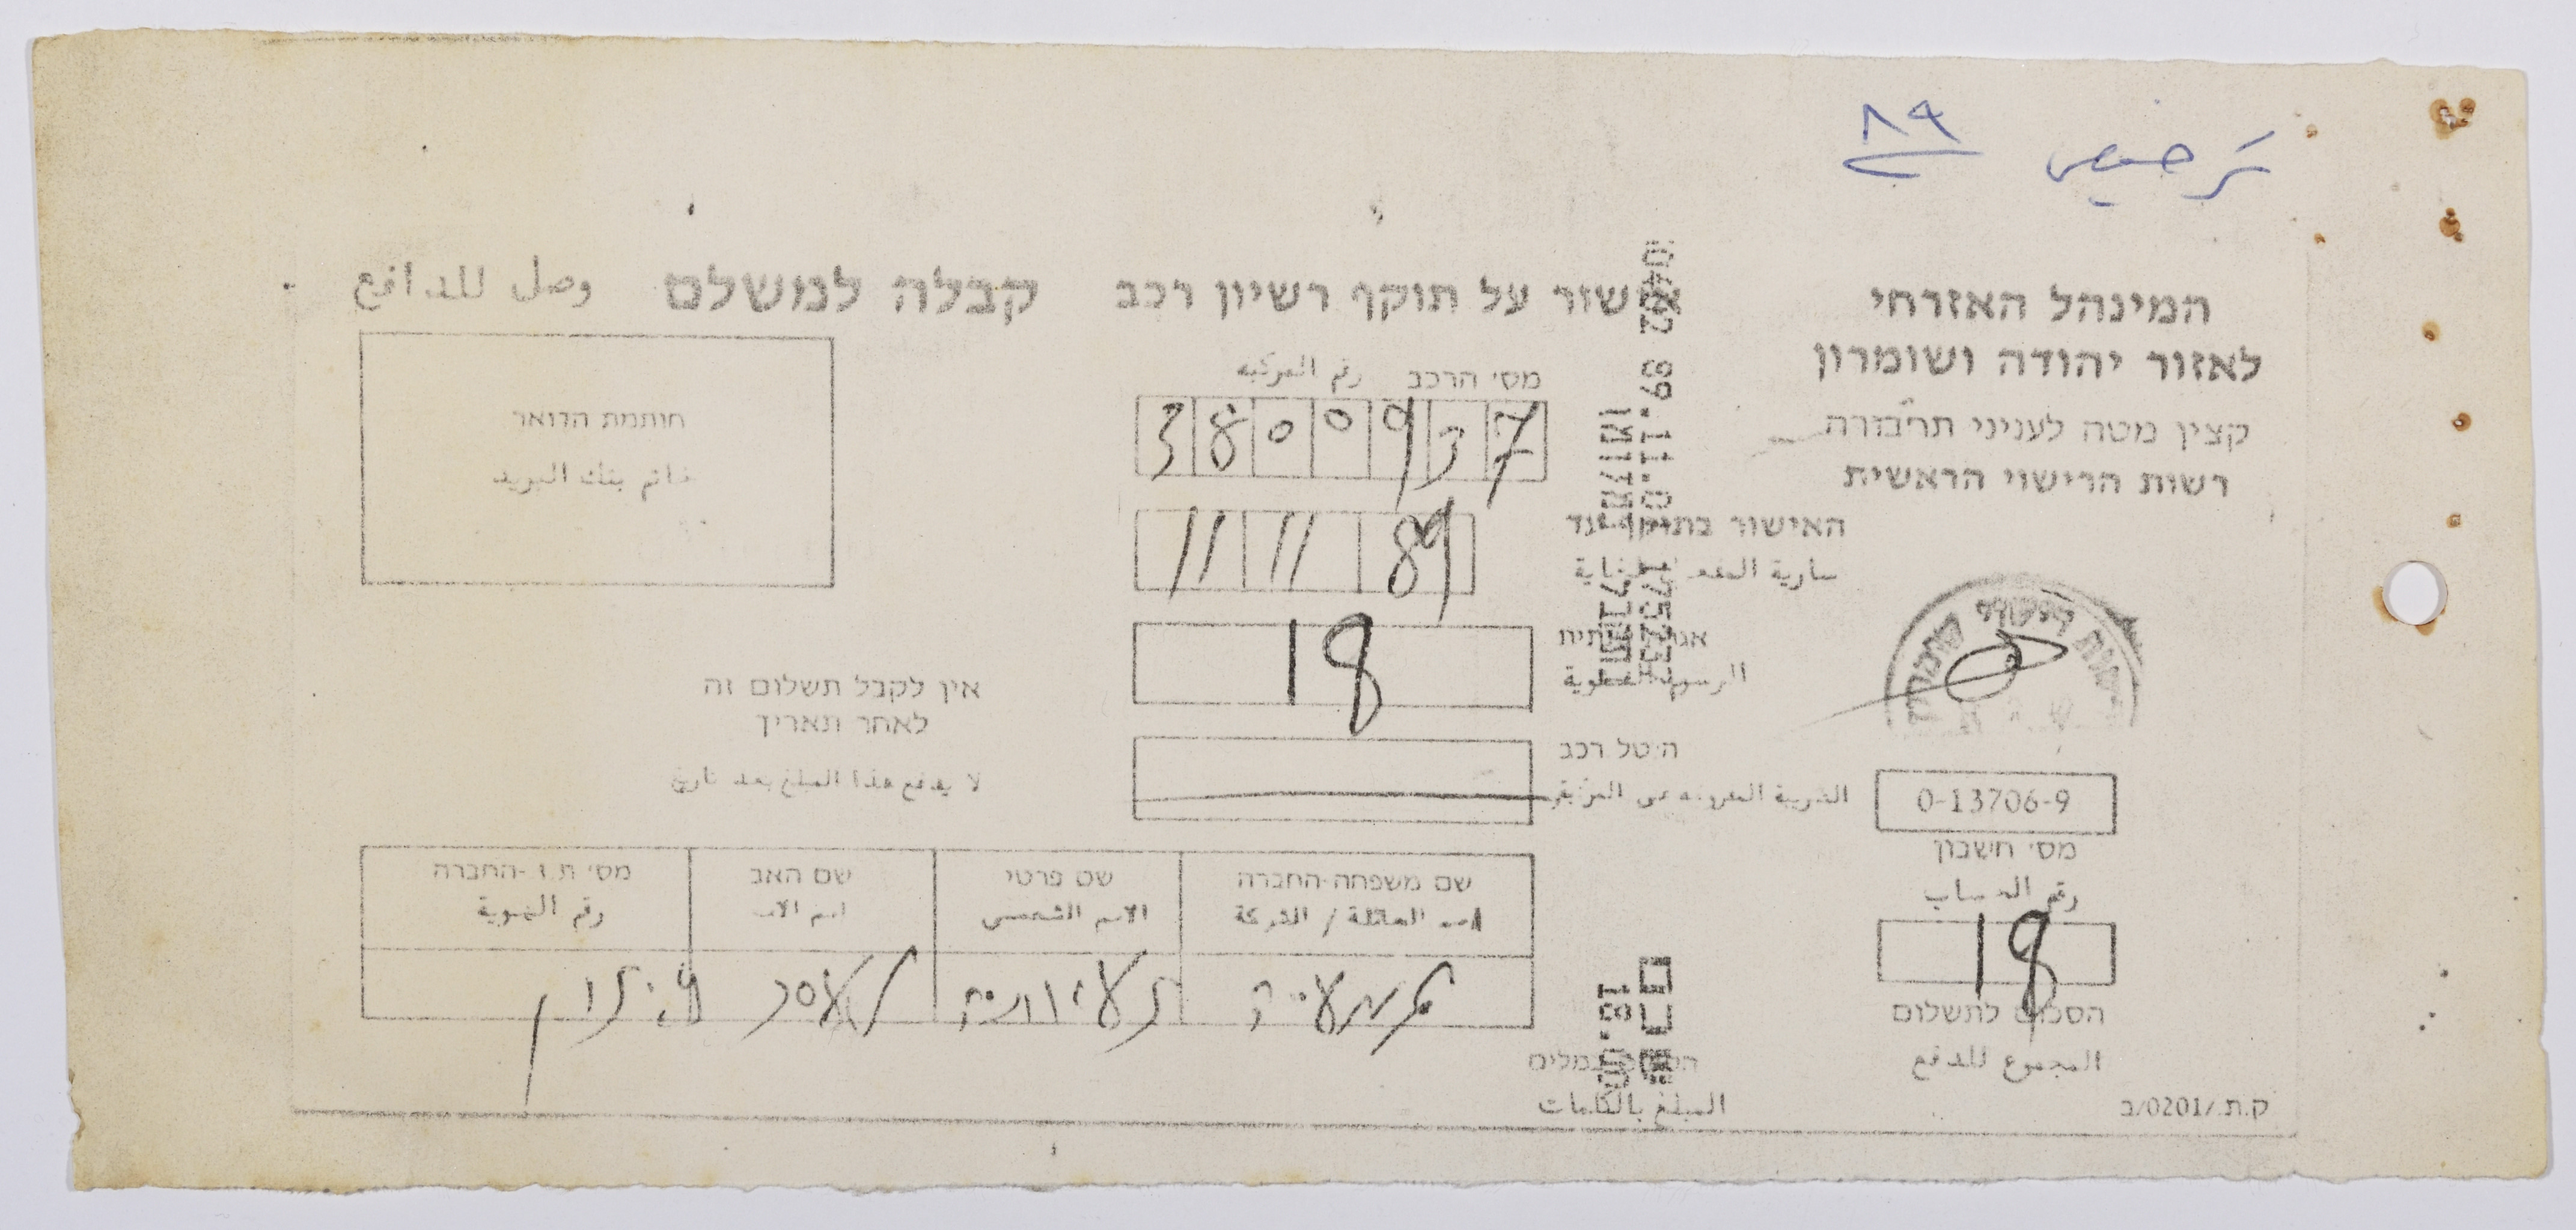 ترخيص ٨٩
המינהל האזרחי
לאזור יהודה ושומרון
קצין מטה לעניני תחבורה
רשות הרישוי הראשית
אישור על תוקף רשיון רכב
קבלה למשלם وصل للدافع
מס׳ הרכב رقم المركبة
3800937
האישור בתוקף עד
سارية المفعول لغاية
11 11 89
18
الرسوم
היטל רכב
חותמת הדואר
خاتم بنك البريد
אין לקבל תשלום זה
לאחר תאריך
لا يدفع هذا المبلغ بعد تاريخ
0-13706-9
מס׳ חשבון
رقم الحساب
18
הסכום לתשלום
المجموع للدفع
שם משפחה-החברה
اسم العائلة / الشركة
שם פרטי
الاسم الشخصي
שם האב
اسم الاب
מס׳ ת.ז.-החברה
رقم الهوية
הסכום במלים
المبلغ بالكلمات
18.00
ק.ת./0201/ב